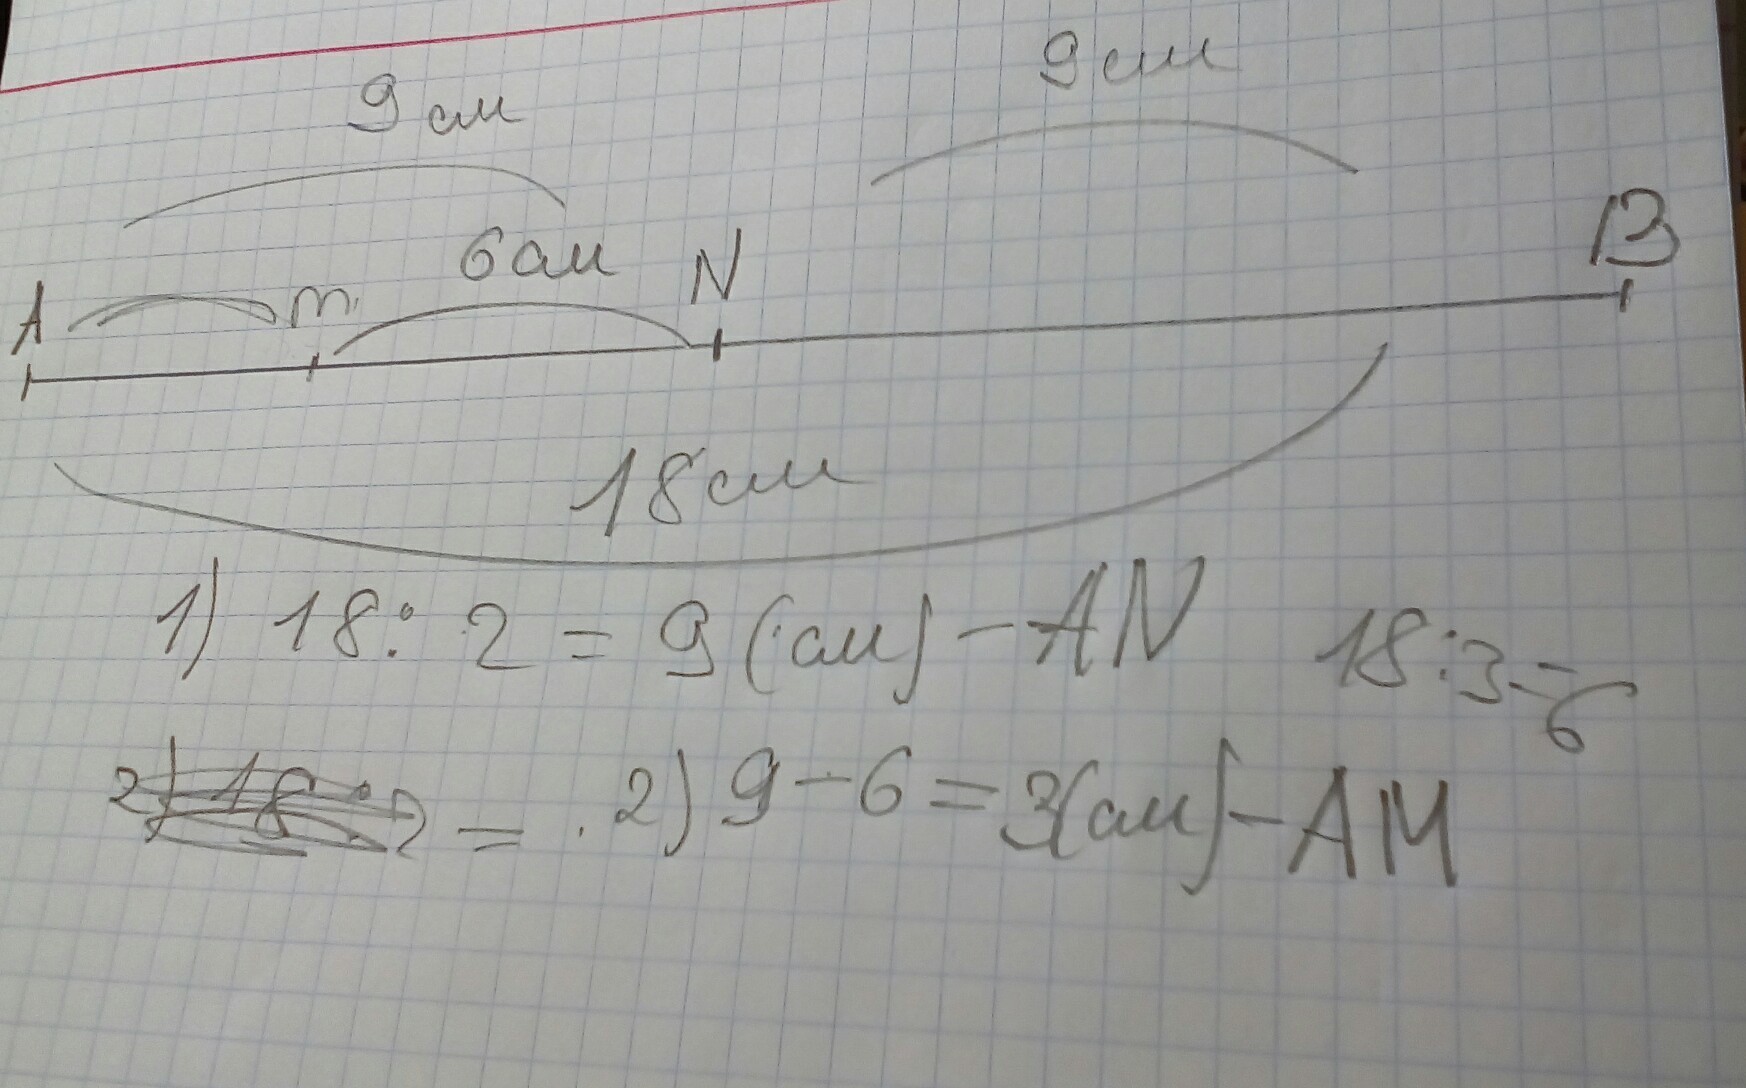 9 см 9 см
A m 6 см N B
18 см
1) 18 : 2 = 9 (см) - AN 18:3=6
2) 18 : 2 = . 2) 9 - 6 = 3(см) - AM